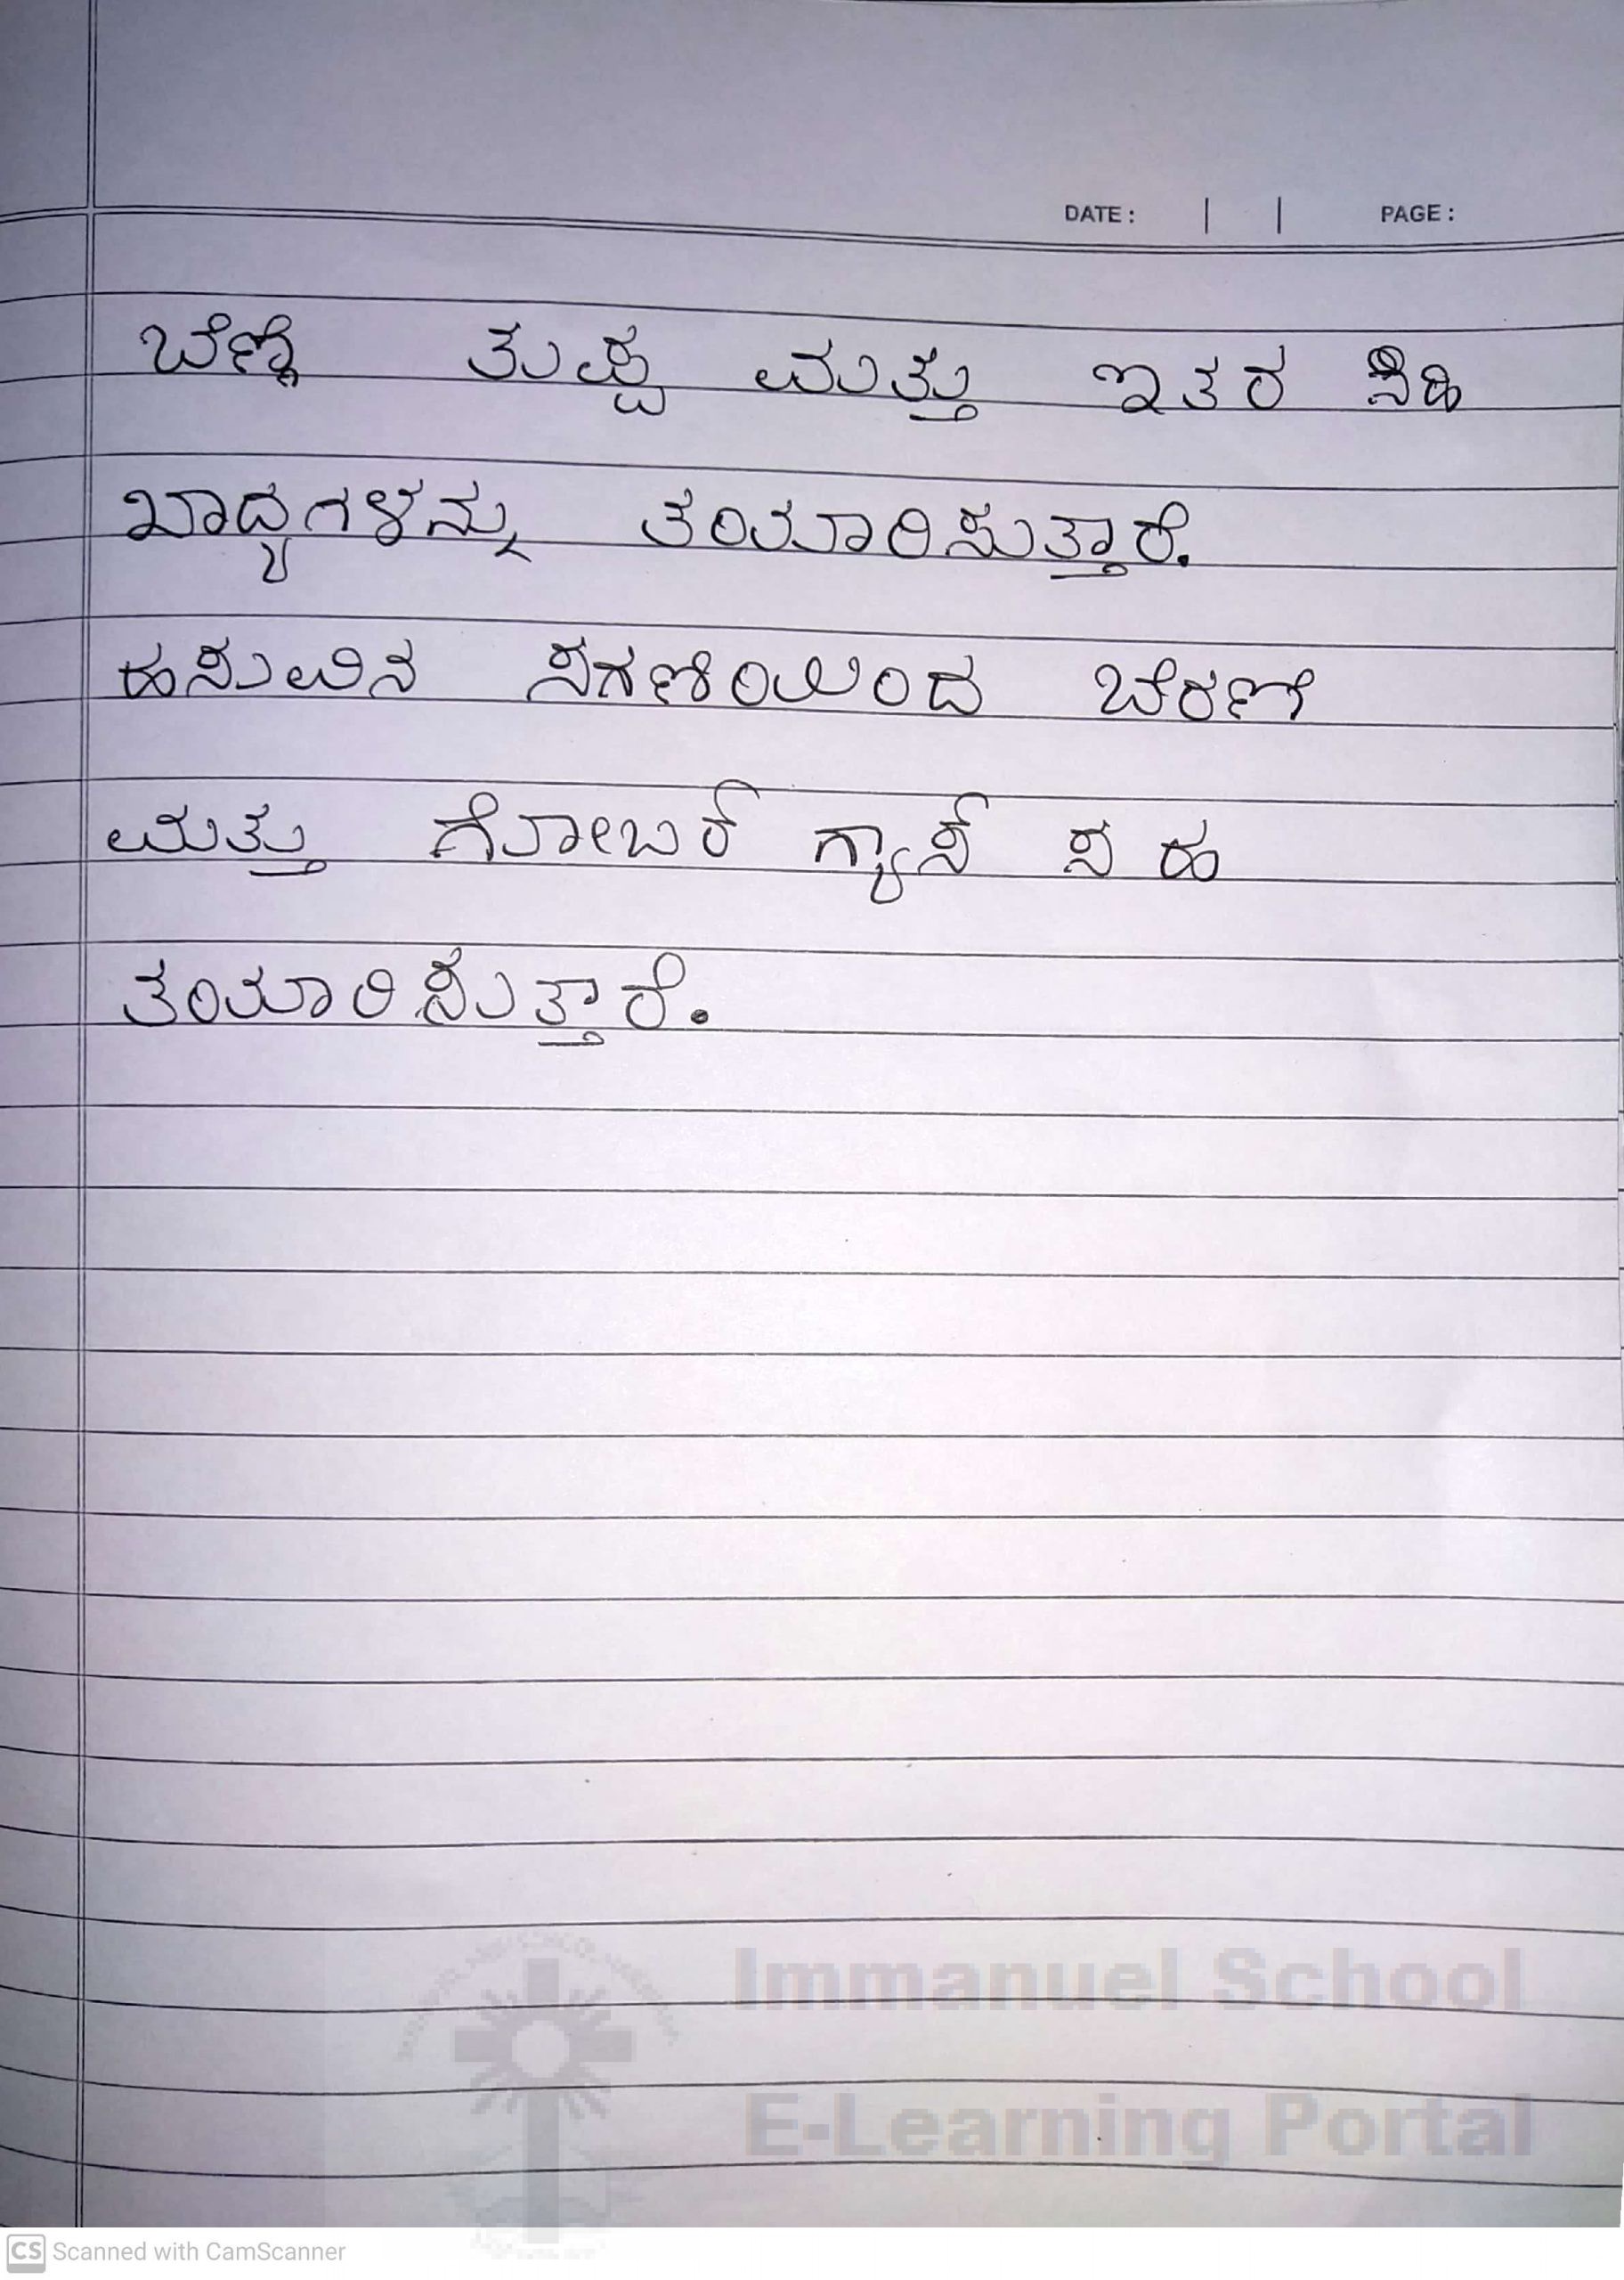 DATE : | | PAGE :
ಬೆಣ್ಣೆ ತುಪ್ಪ ಮತ್ತು ಇತರ ಸಿಹಿ
ಖಾದ್ಯಗಳನ್ನು ತಯಾರಿಸುತ್ತಾರೆ.
ಹಸುವಿನ ಸಗಣಿಯಿಂದ ಬೆರಣಿ
ಮತ್ತು ಗೋಬರ್ ಗ್ಯಾಸ್ ಸಹ
ತಯಾರಿಸುತ್ತಾರೆ.
Immanuel School
E-Learning Portal
CS Scanned with CamScanner